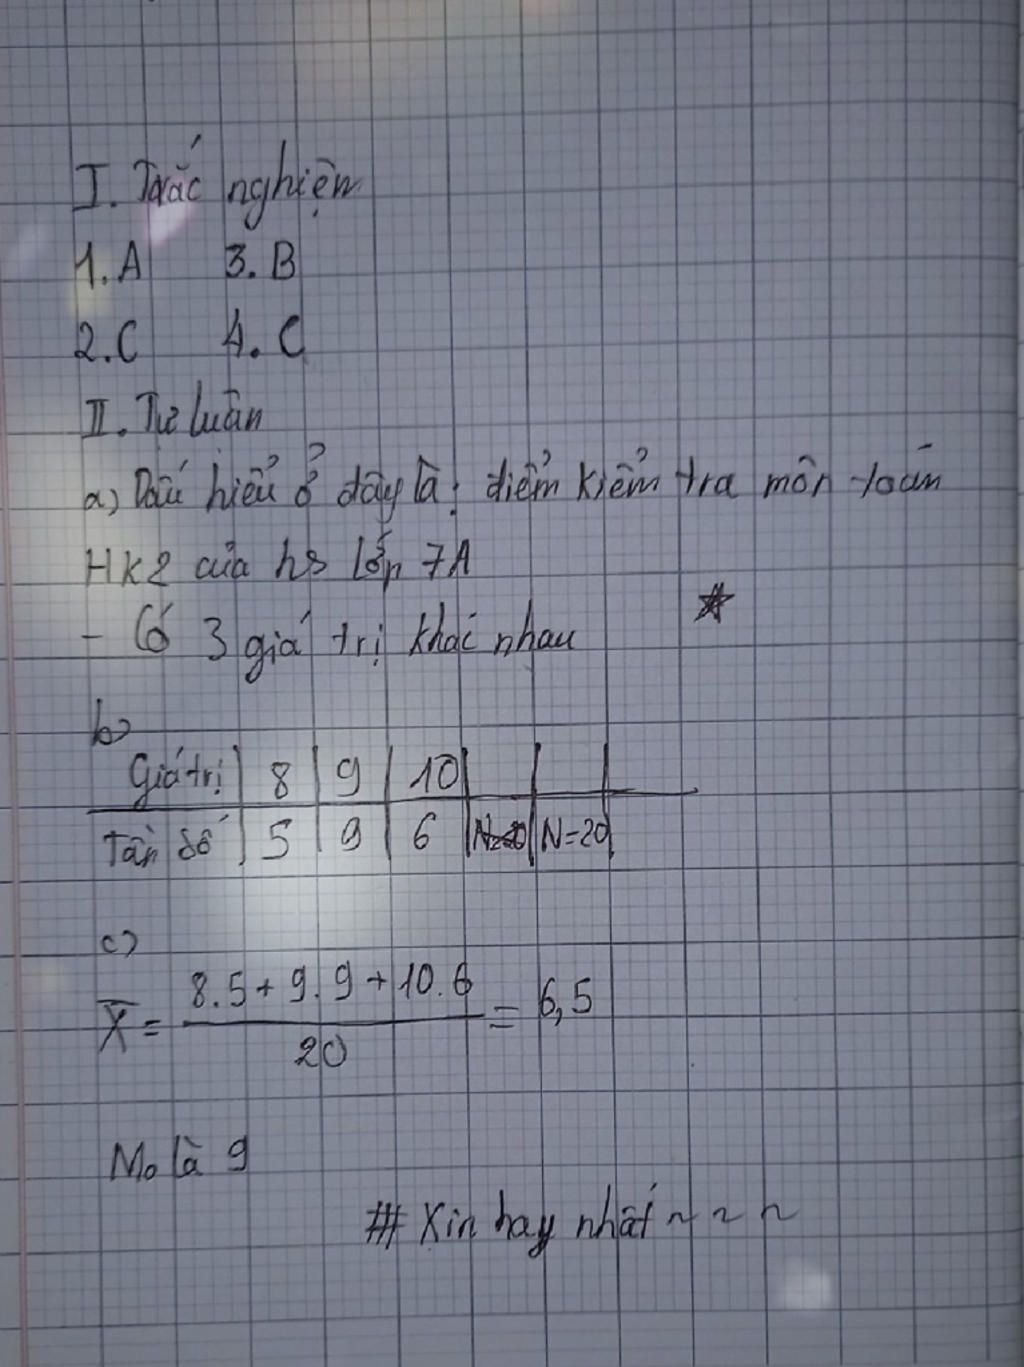 I. Trắc nghiện
1. A 3. B
2. C 4. C
II. Tự luận
a) Dấu hiểu ở đây là: điểm kiểm tra môn toán
HK2 của hs lớp 7A
- Có 3 giá trị khác nhau
b)
Giá trị 8 9 10
Tần số 5 9 6 N=20 N=20
c)
X̅ = (8.5 + 9.9 + 10.6)/20 = 6,5
Mo là 9
# Xin hay nhất ~ ~ ~